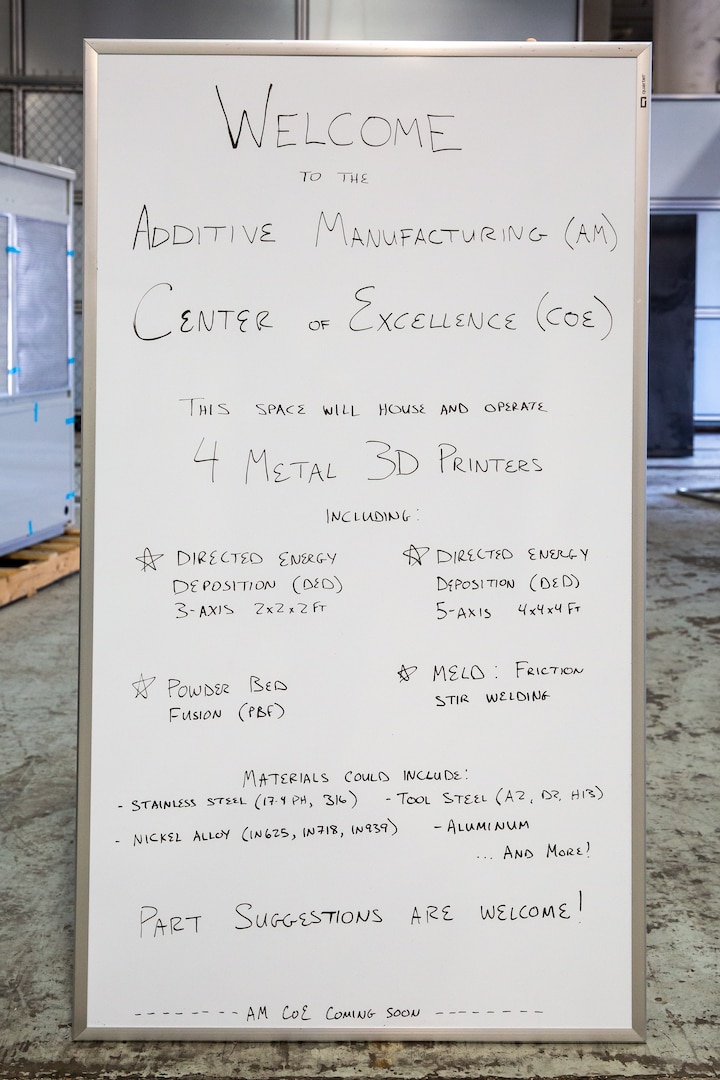 WELCOME
TO THE
ADDITIVE MANUFACTURING (AM)
CENTER OF EXCELLENCE (COE)
THIS SPACE WILL HOUSE AND OPERATE
4 METAL 3D PRINTERS
INCLUDING:
☆ DIRECTED ENERGY
DEPOSITION (DED)
3-AXIS 2x2x2 FT
☆ DIRECTED ENERGY
DEPOSITION (DED)
5-AXIS 4x4x4 FT
☆ POWDER BED
FUSION (PBF)
☆ MELD: FRICTION
STIR WELDING
MATERIALS COULD INCLUDE:
- STAINLESS STEEL (17-4 PH, 316) - TOOL STEEL (A2, D2, H13)
- NICKEL ALLOY (IN625, IN718, IN939) - ALUMINUM
... AND MORE!
PART SUGGESTIONS ARE WELCOME!
-------- AM COE COMING SOON --------
quartet